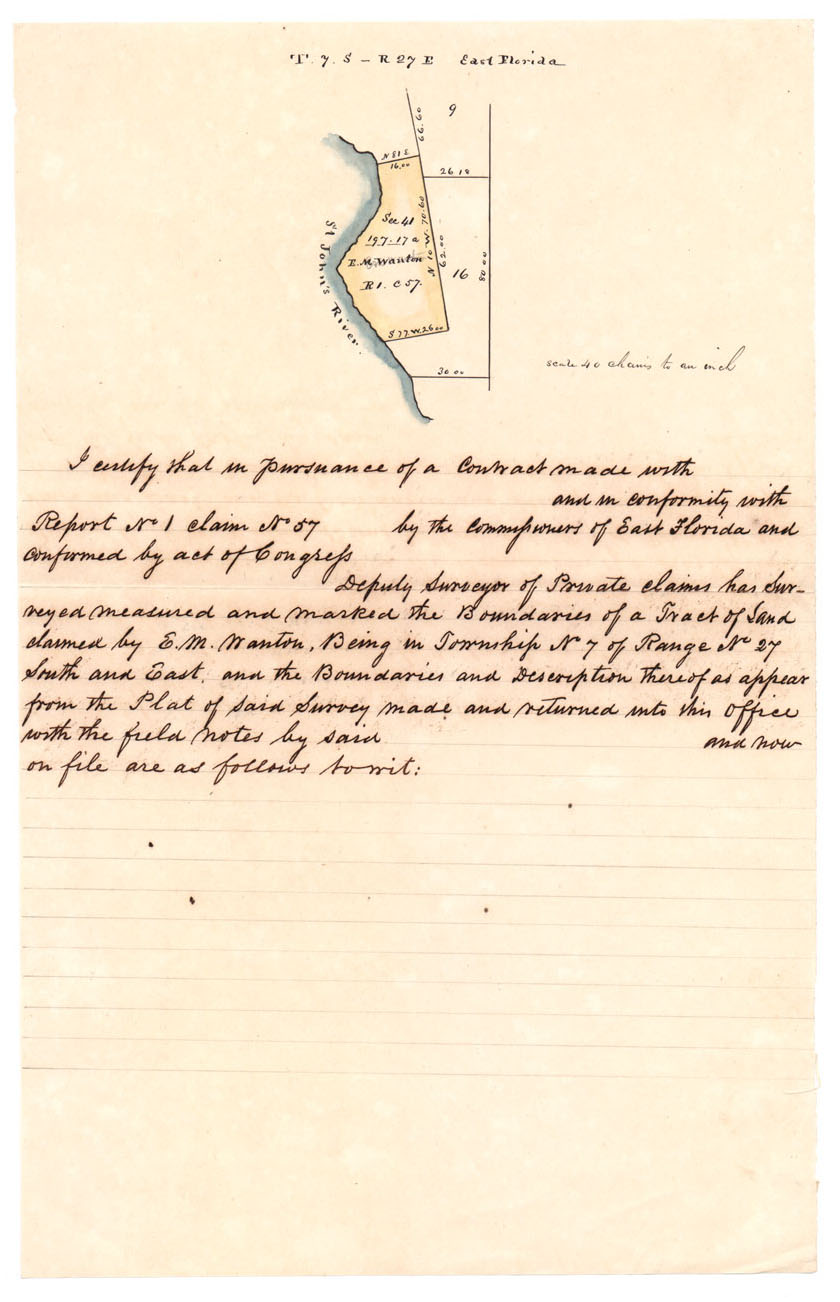 T. 7. S – R 27 E East Florida
9
66.60
N 81 E
16.00
26 18
Sec 41
197.17 a
E. M. Wanton
R 1. C 57.
N 10 W. 70.60
62.00
16
80 00
St John's River.
S 77 W. 26 00
30 00
scale 40 chains to an inch
I certify that in pursuance of a Contract made with
and in conformity with
Report No 1 claim No 57 by the Commissioners of East Florida and
confirmed by act of Congress
Deputy Surveyor of Private claims has Sur-
veyed measured and marked the Boundaries of a Tract of Land
claimed by E. M. Wanton, Being in Township No 7 of Range No 27
South and East, and the Boundaries and Description thereof as appear
from the Plat of said Survey made and returned into this office
with the field notes by said and now
on file are as follows to wit: